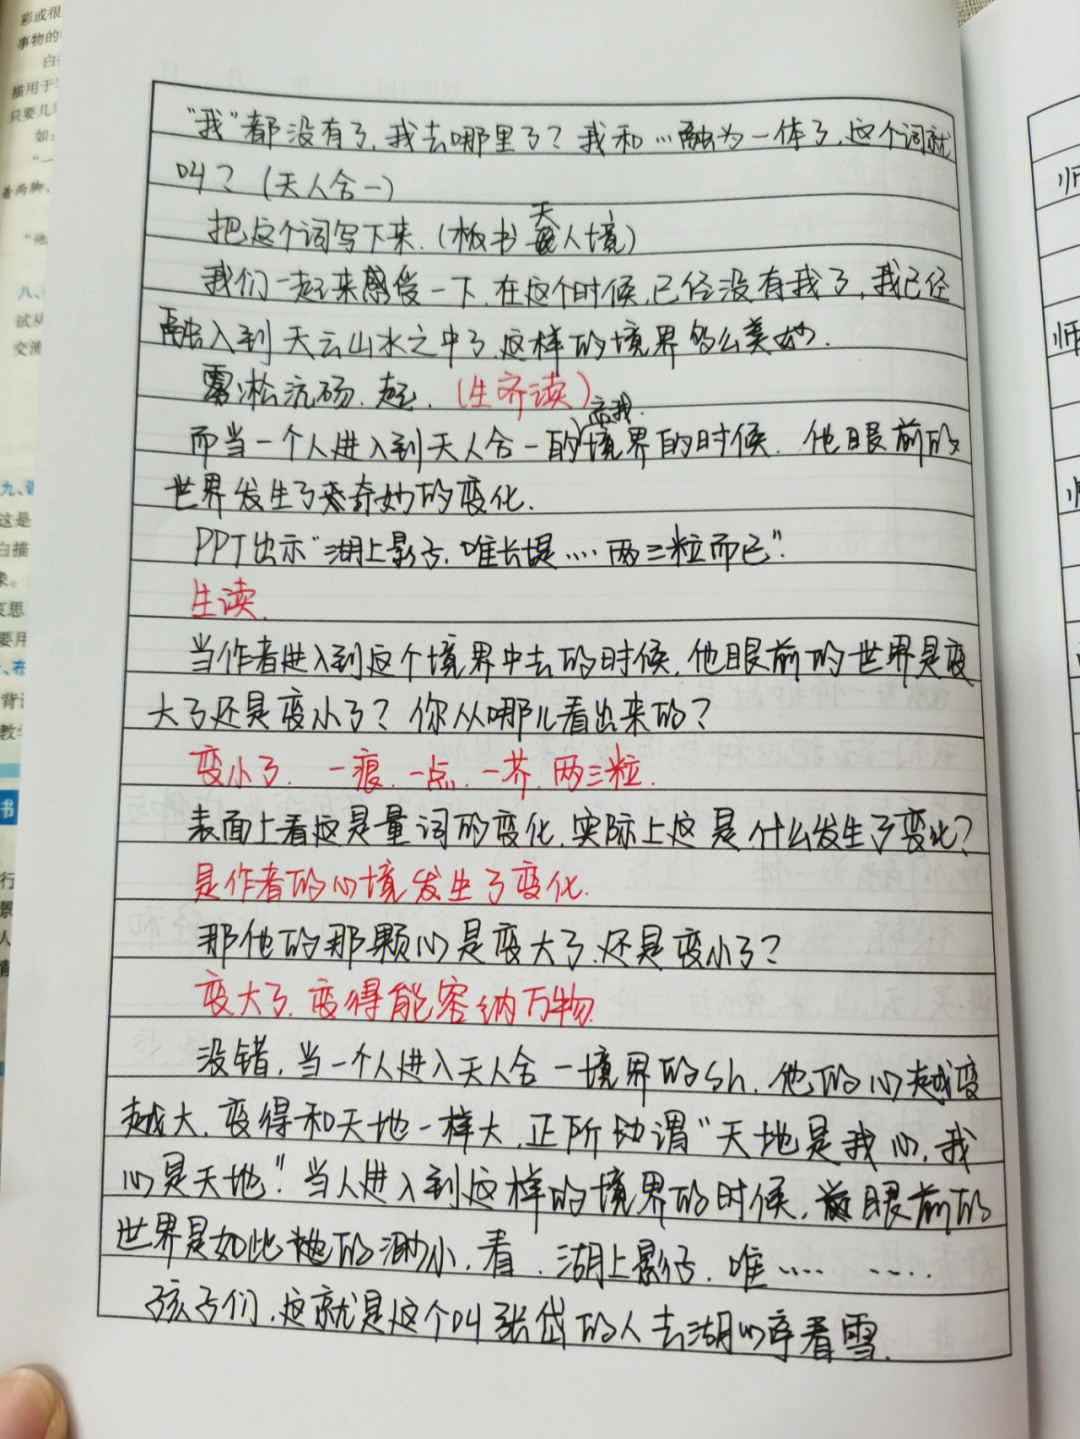 “我”都没有了,我去哪里了?我和…融为一体了,这个词就
叫?(天人合一)
把这个词写下来.(板书 天人境)
我们一起来感受一下,在这个时候,已经没有我了,我已经
融入到天云山水之中了,这样的境界多么美妙.
雾凇沆砀.起.(生齐读)
而当一个人进入到天人合一的忘我境界的时候.他眼前的
世界发生了奇妙的变化.
PPT出示“湖上影子.唯长堤....两三粒而已”.
生读.
当作者进入到这个境界中去的时候,他眼前的世界是变
大了还是变小了?你从哪儿看出来的?
变小了.一痕.一点.一芥.两三粒.
表面上看这是量词的变化.实际上这是什么发生了变化?
是作者的心境发生了变化.
那他的那颗心是变大了.还是变小了?
变大了.变得能容纳万物.
没错,当一个人进入天人合一境界的sh.他的心越变
越大.变得和天地一样大.正所谓“天地是我心,我
心是天地”.当人进入到这样的境界的时候,眼前的
世界是如此地的渺小.看.湖上影子.唯.... .....
孩子们,这就是这个叫张岱的人去湖心亭看雪.
彩或很
事物的
描用于
只要几
如:
“一
着两脚、
“他
八、
试从
交流
九、
这是
白描
象。
哀思
要用
、布
背
教学
书
行
景
人
情
师
师